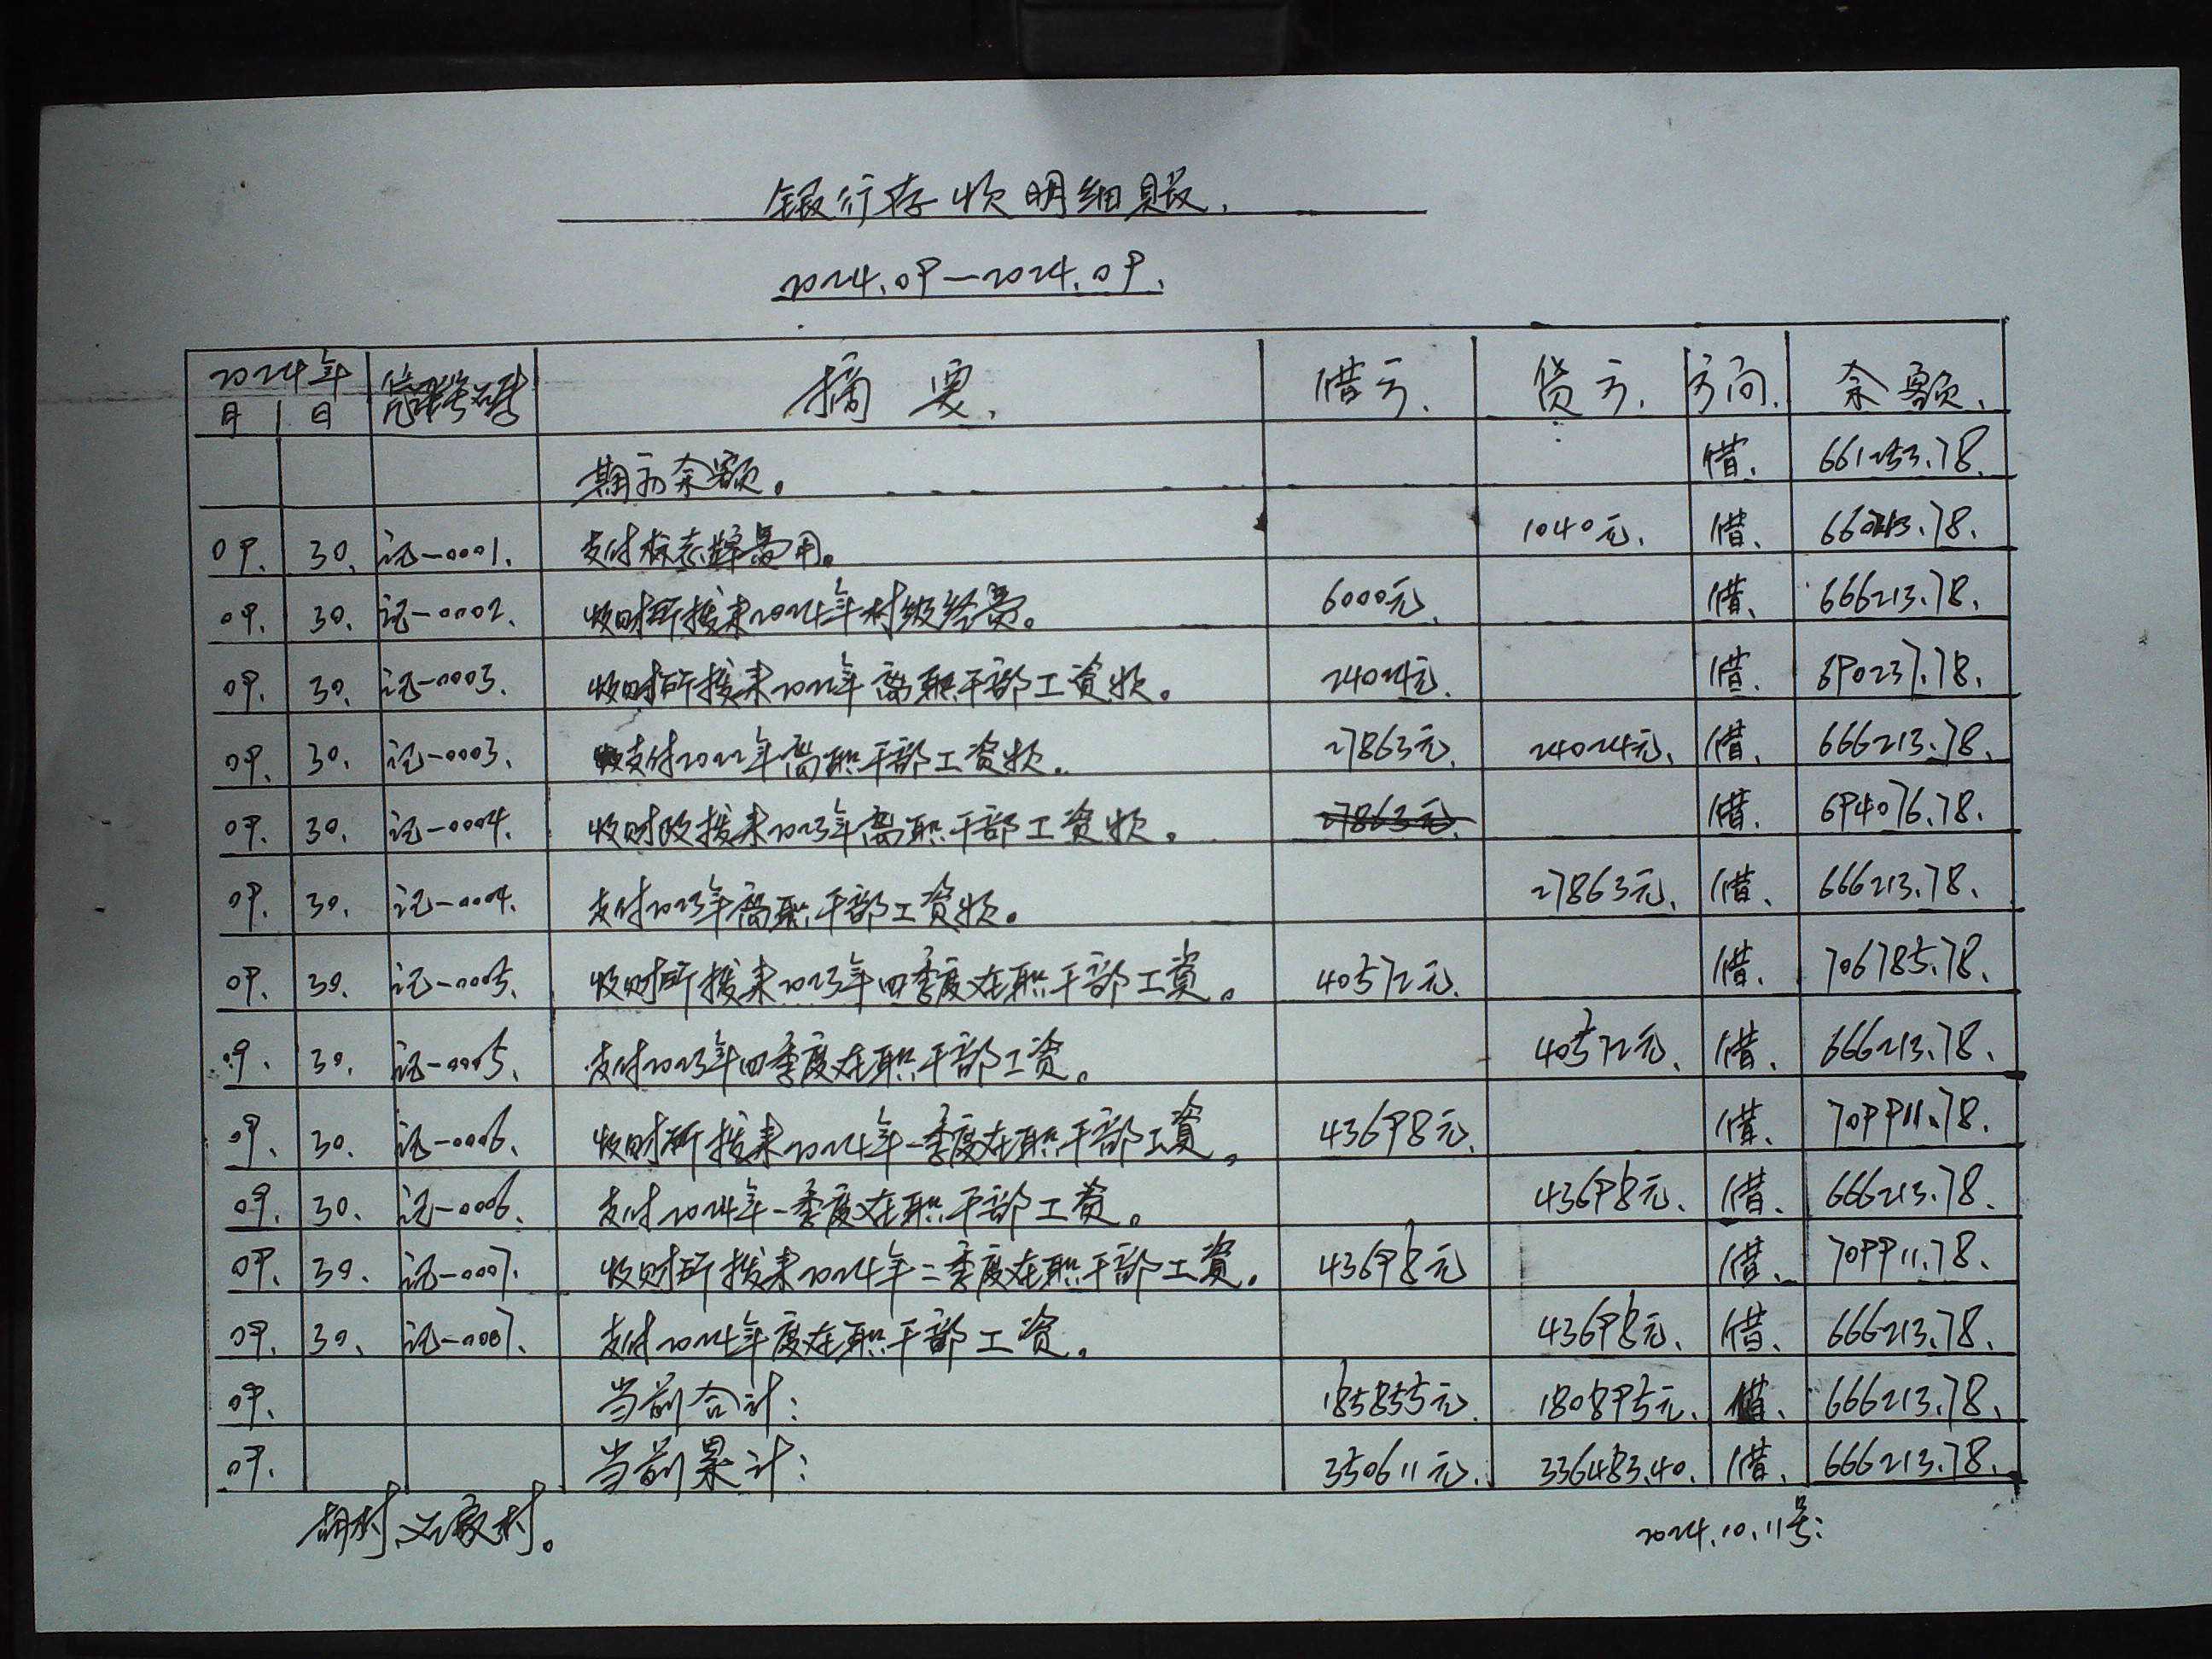 银行存款明细账.
2024.09—2024.09.
2024年 摘要. 借方. 贷方. 方向. 余额.
月 日
期初余额。 借. 661253.78.
09. 30. 记-0001. 支付标志牌费用。 1040元. 借. 660213.78.
09. 30. 记-0002. 收财所拨来2024年村级经费。 6000元. 借. 666213.78.
09. 30. 记-0003. 收财所拨来2022年离职干部工资款。 24024元. 借. 690237.78.
09. 30. 记-0003. 支付2022年离职干部工资款. 27863元. 24024元. 借. 666213.78.
09. 30. 记-0004. 收财政拨来2023年离职干部工资款。 27863元. 借. 694076.78.
09. 30. 记-0004. 支付2023年离职干部工资款。 27863元. 借. 666213.78.
09. 30. 记-0005. 收财所拨来2023年四季度在职干部工资。 40572元. 借. 706785.78.
09. 30. 记-0005. 支付2023年四季度在职干部工资。 40572元. 借. 666213.78.
09. 30. 记-0006. 收财所拨来2024年一季度在职干部工资。 43698元. 借. 709911.78.
09. 30. 记-0006. 支付2024年一季度在职干部工资。 43698元. 借. 666213.78.
09. 30. 记-0007. 收财所拨来2024年二季度在职干部工资。 43698元 借. 709911.78.
09. 30. 记-0007. 支付2024年度在职干部工资。 43698元. 借. 666213.78.
09. 当前合计: 185855元. 180895元. 借. 666213.78.
09. 当前累计: 350611元. 336483.40. 借. 666213.78.
2024.10.11号: